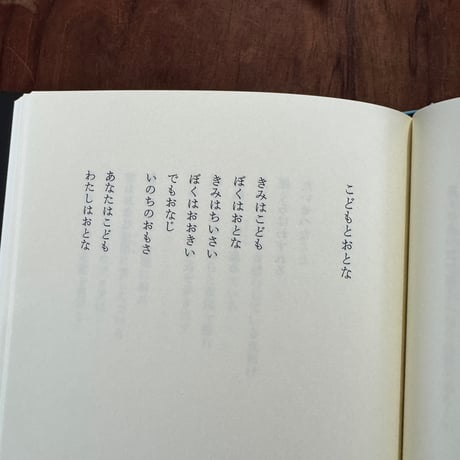 こどもとおとな
きみはこども
ぼくはおとな
きみはちいさい
ぼくはおおきい
でもおなじ
いのちのおもさ
あなたはこども
わたしはおとな